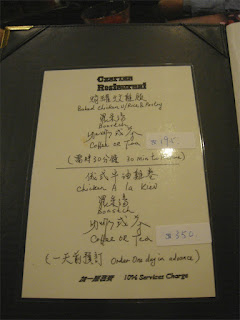 Czarina
Restaurant
Baked Chicken w/Rice &
羅宋湯
咖啡或茶
Coffee or Tea
$195.
(需時30分鐘 30 min to
俄式牛油雞卷
Chicken A la Kiev
羅宋湯
咖啡或茶
Coffee or Tea
$350.
(一天前預訂 Order One day in advance)
加一服務費 10% Services Charge